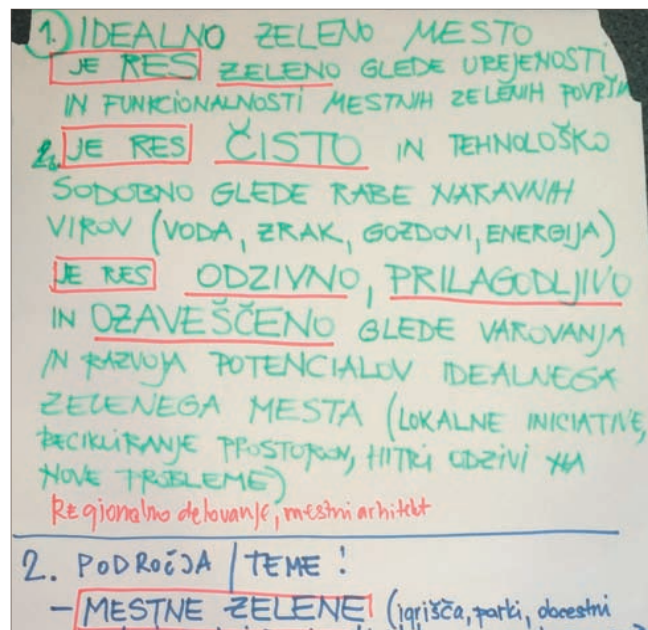 1. IDEALNO ZELENO MESTO
JE RES ZELENO GLEDE UREJENOSTI
IN FUNKCIONALNOSTI MESTNIH ZELENIH POVRŠIN
2. JE RES ČISTO IN TEHNOLOŠKO
SODOBNO GLEDE RABE NARAVNIH
VIROV (VODA, ZRAK, GOZDOVI, ENERGIJA)
JE RES ODZIVNO, PRILAGODLJIVO
IN OZAVEŠČENO GLEDE VAROVANJA
IN RAZVOJA POTENCIALOV IDEALNEGA
ZELENEGA MESTA (LOKALNE INICIATIVE,
RECIKLIRANJE PROSTOROV, HITRI ODZIVI NA
NOVE PROBLEME)
Regionalno delovanje, mestni arhitekt
2. PODROČJA / TEME !
- MESTNE ZELENE (igrišča, parki, obcestni